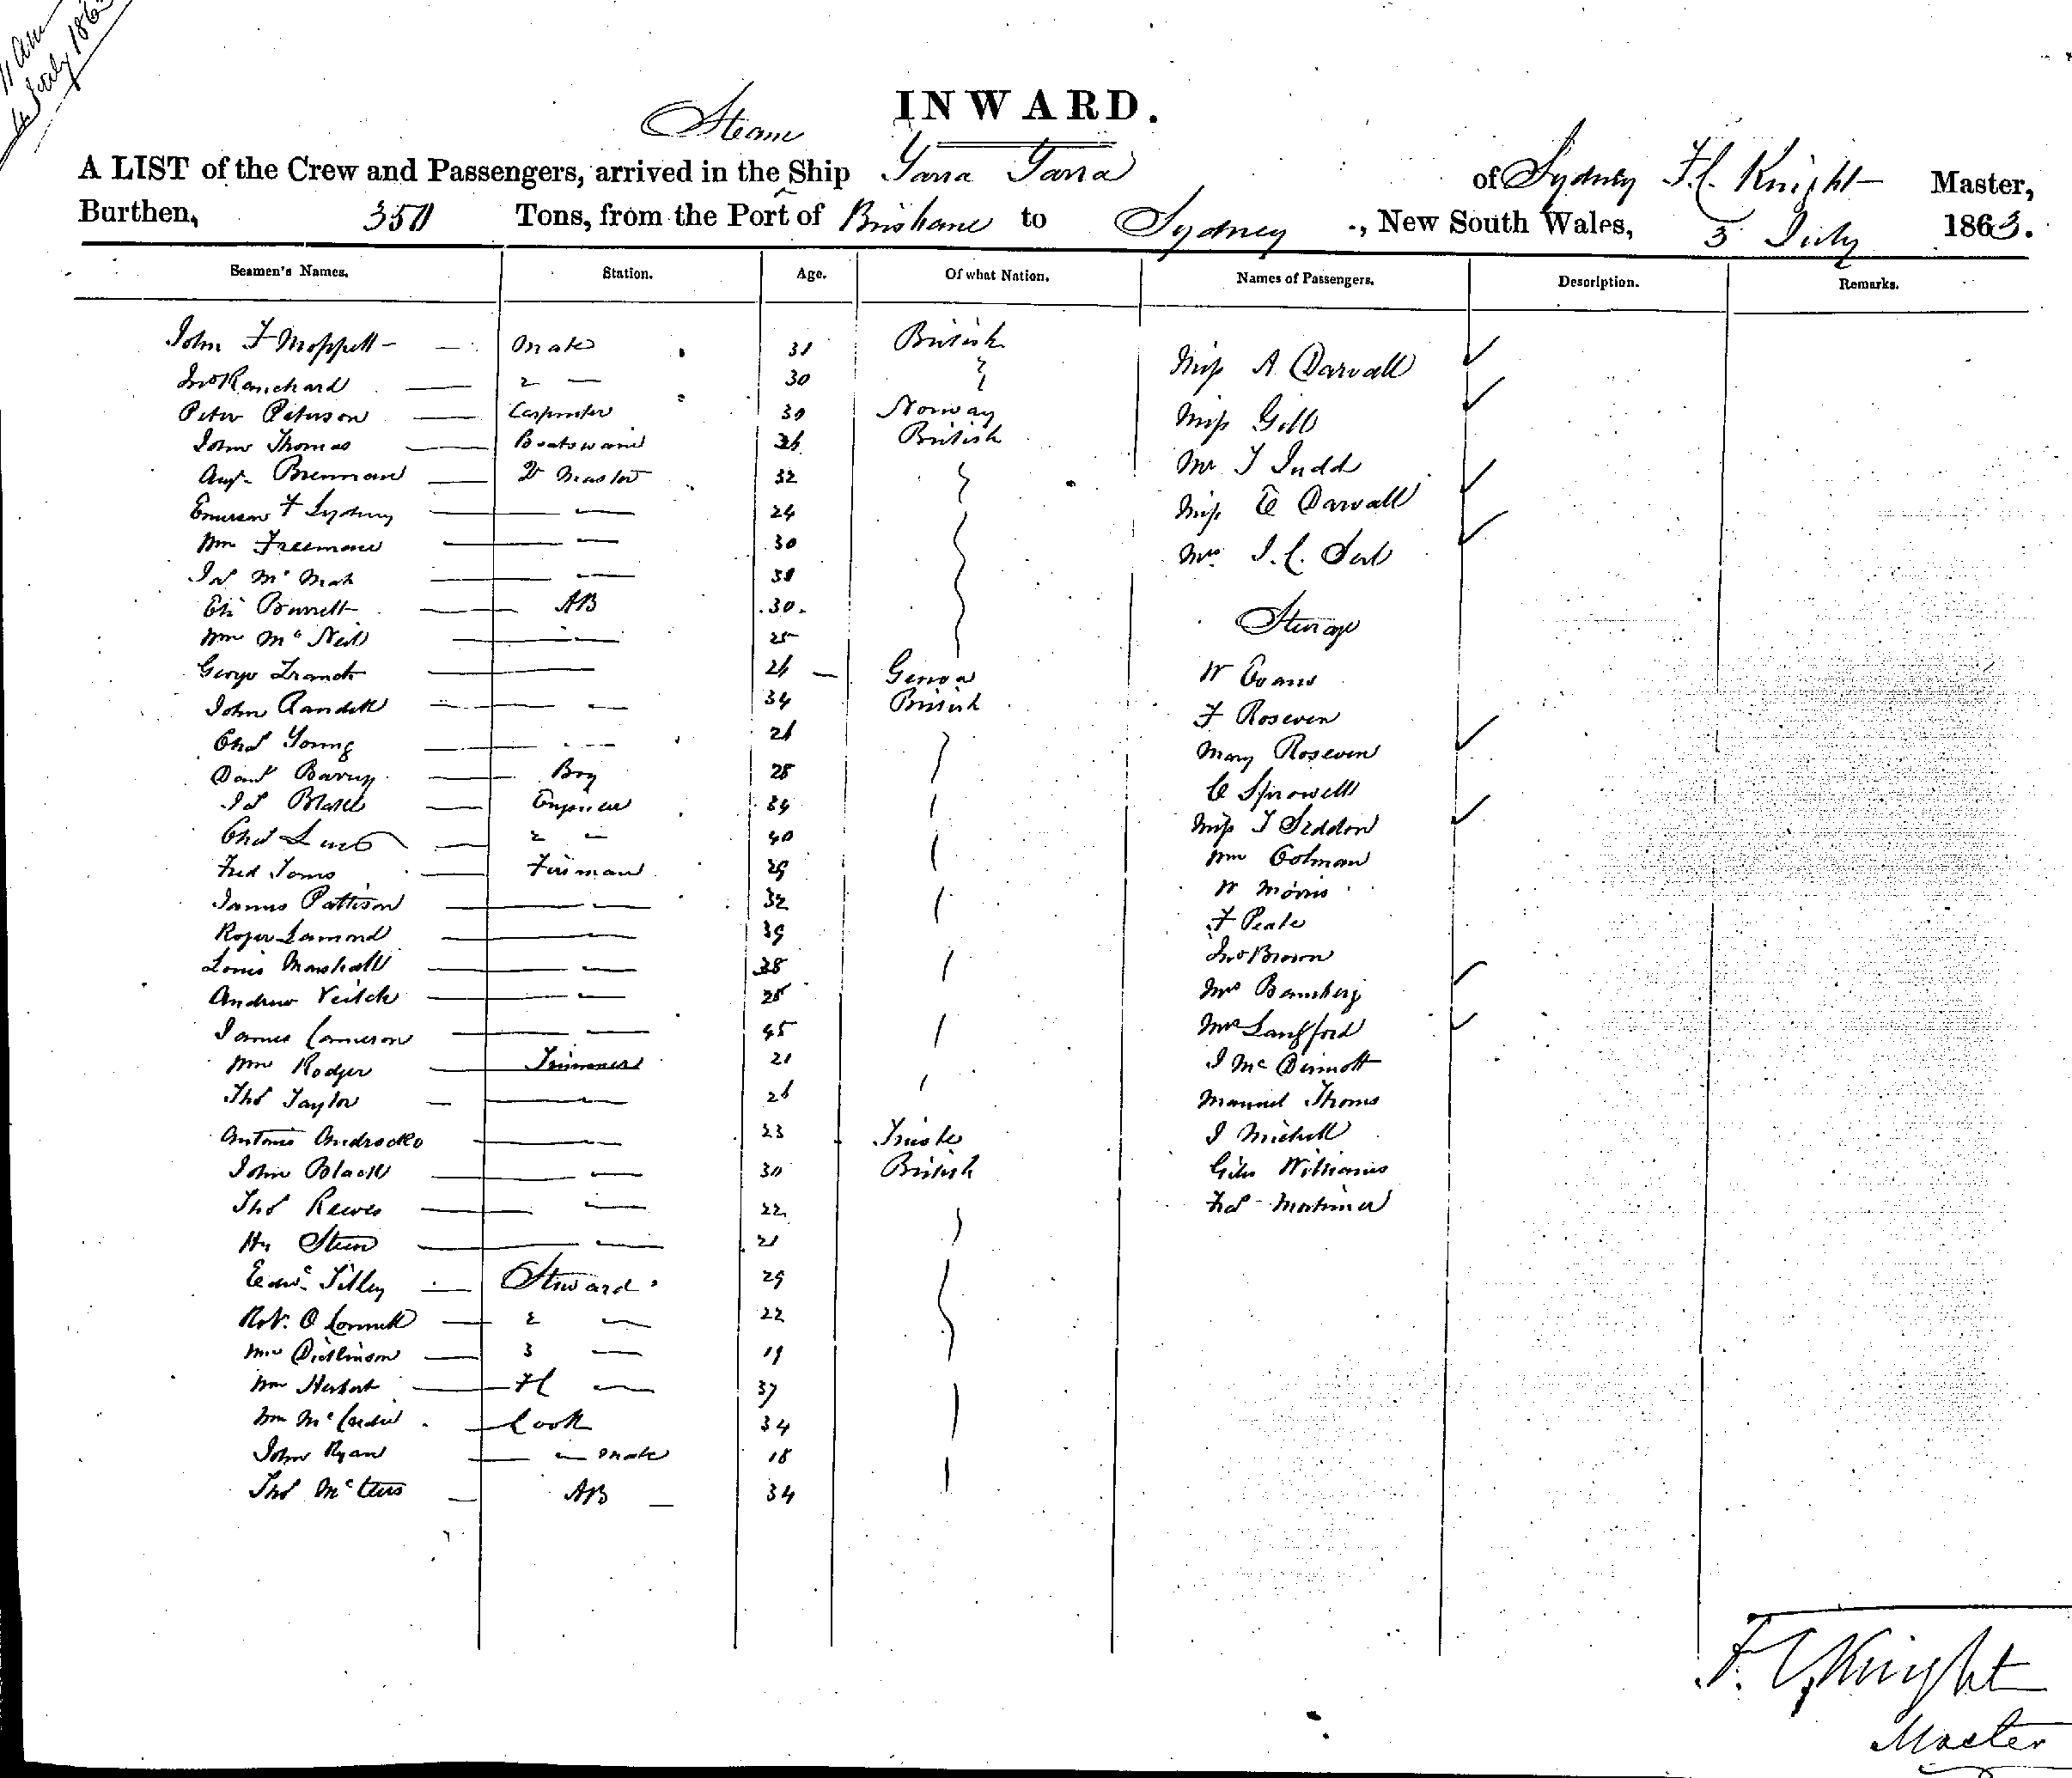 11 am
4 July 186
INWARD.
Steam
A LIST of the Crew and Passengers, arrived in the Ship Yarra Yarra of Sydney F.C. Knight Master,
Burthen, 350 Tons, from the Port of Brisbane to Sydney, New South Wales, 3 July 1863.
Seamen's Names. Station. Age. Of what Nation. Names of Passengers. Description. Remarks.
John F Moppett — Mate 31 British
Jno Ranichard — 2 — 30
Peter Peterson — Carpenter 30 Norway
John Thomas — Boatswain 26 British
Augt Brennan — Master 32
Emerson F Sydney — — 24
Wm Freeman — — 30
Jas Mc — — 38
Eli Barrett — AB 30
Wm McNeil — — 25
George — 26 — Genoa
John Randell — — 34 British
Chas Young — — 26
Danl Barry — Boy 25
Jas — Engineer 34
Chas — 2 — 40
Fred Toms — Fireman 29
James Pattison — — 32
Roger Lamond — — 39
Louis Marshall — — 38
Andrew Veitch — — 25
James Cameron — — 45
Wm Rodger — Trimmers 21
Thos Taylor — — 26
Antonio — — 23 Trieste
John Black — — 30 British
Thos Reeves — — 22
Hy Steen — — 21
Edwd Tilley — Steward 29
Robt. O Connell — 2 — 22
Wm Dickinson — 3 — 19
Wm Herbert — FC — 37
Wm Mc — Cook 34
John Ryan — — mate 18
Thos Mc — AB — 34
Miss A Darvall
Miss Gill
Mr T Judd
Miss E Darvall
Mrs J.C.
Steerage
W Evans
F Roseven
Mary Roseven
C Sprowell
Miss T Seddon
Wm Colman
W Morris
F Peate
Jno Brown
Mrs Bamberg
Mrs Langford
J McDermott
Manuel Thoms
J Michell
Giles Williams
Mortimer
F. C. Knight
Master